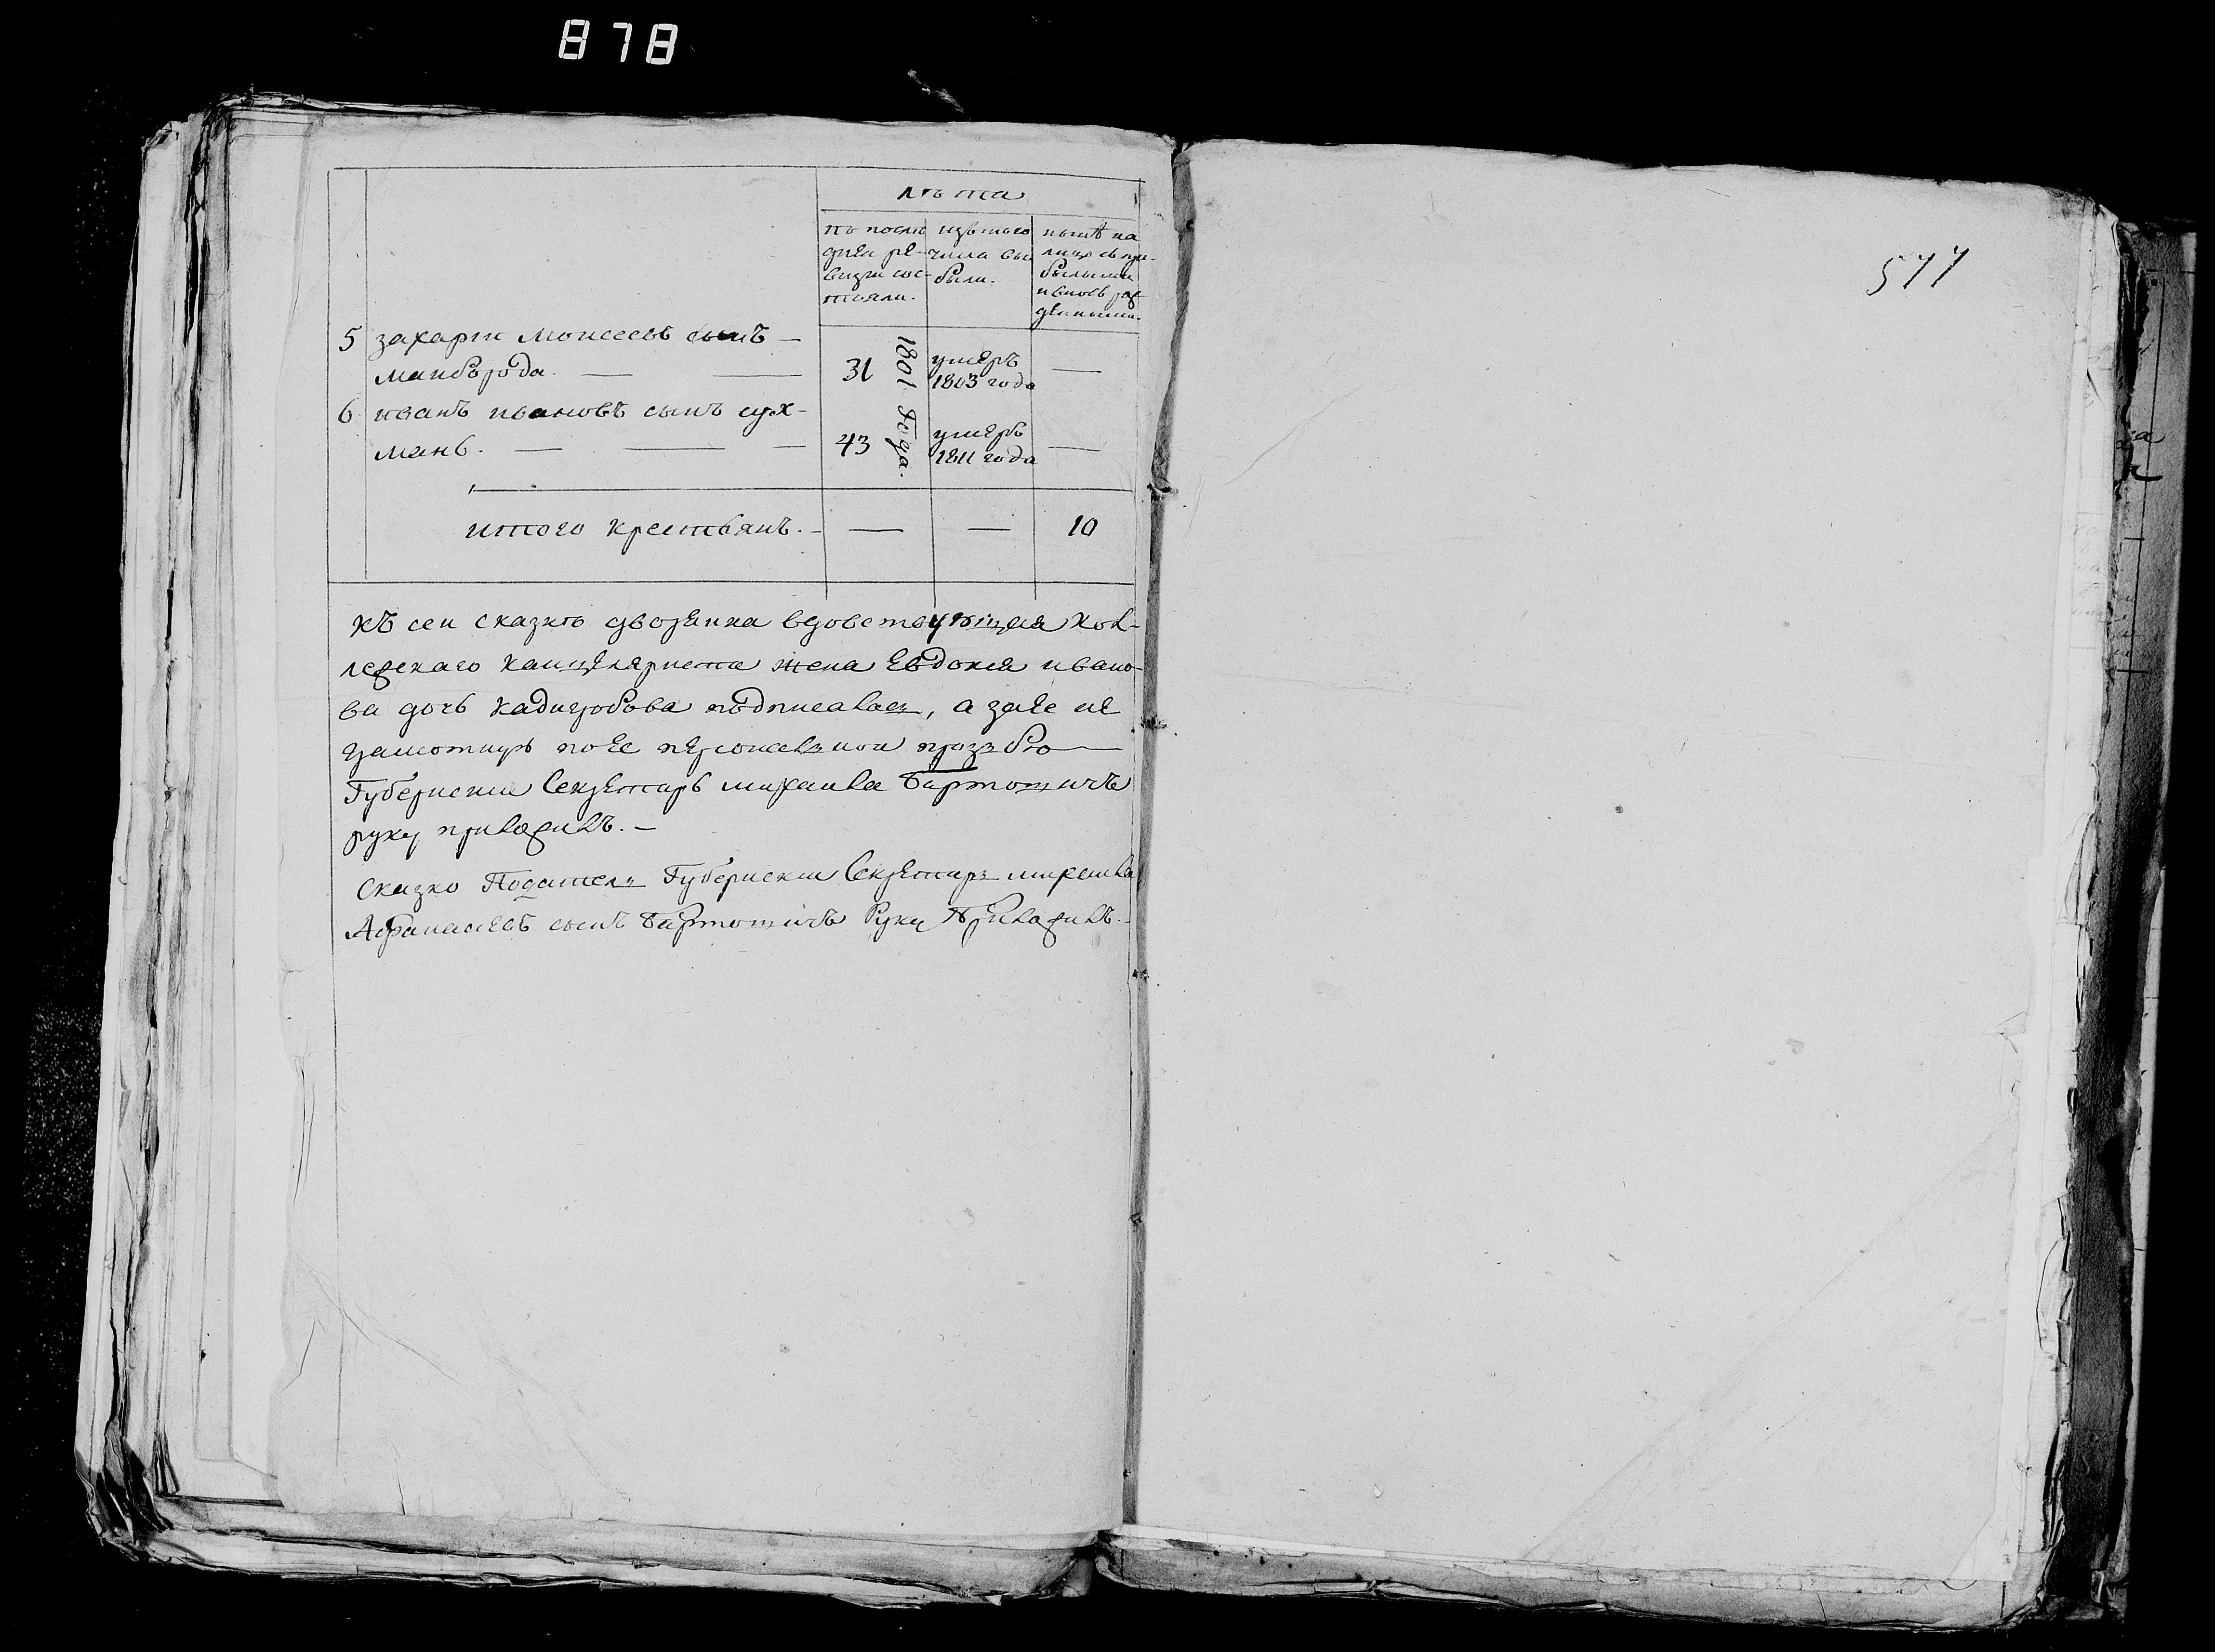 878
577
лѣта
по послѣ
дней ре-
визіи сос-
тояли.
изъ того
числа вы
были.
нынѣ на
лицо съ при-
былыми
и вновь рож
денными.
5 захарии Моисеевъ сынъ —
Манборода. — — 31 умеръ 1803 года —
1801 Года.
6 иванъ ивановъ сынъ сух-
мань. — — — 43 умеръ 1811 года —
итого крестьянъ. — — — 10
къ сеи сказкѣ дворянка вдовствующая кол-
лежскаго канцеляриста жена Евдокия ивано-
ва дочь кадигробова подписалась, а за ее не
грамотную по ее персоналной прозбѣ —
Губернскии Секретарь михаила Бартошичъ
руку приложилъ. —
Сказко Податель Губернскии Секретарь михаила
Афанасиевъ сынъ Бартошичъ Руку Приложилъ. —